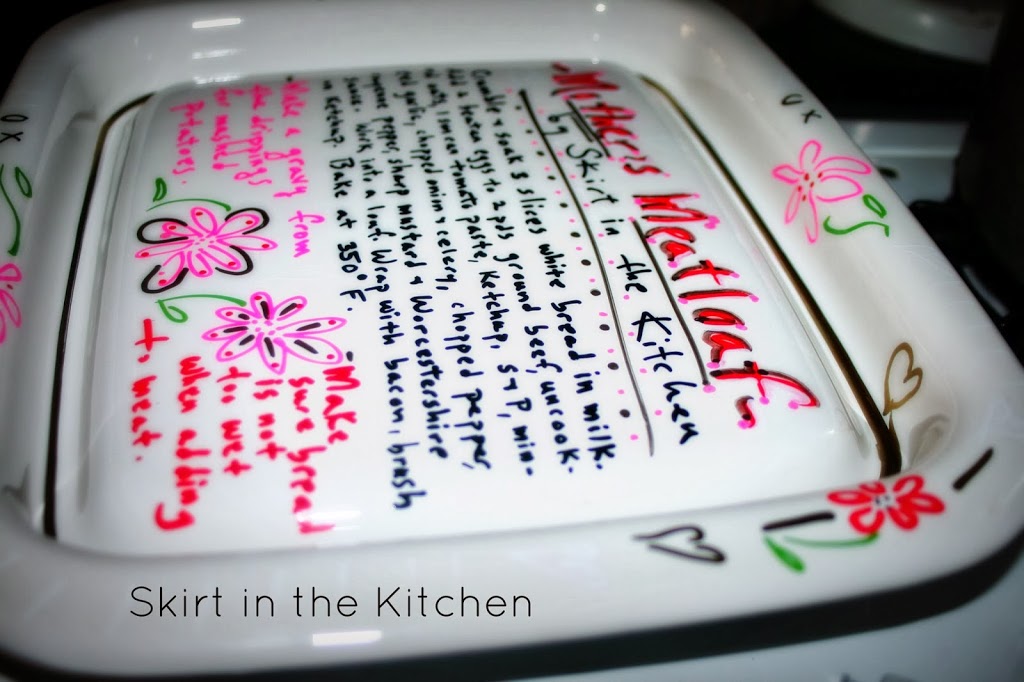 Mother's Meatloaf
by Skirt in the Kitchen
Crumble & soak 3 slices white bread in milk.
Add a beaten eggs to 2 pds ground beef, uncook-
ed oats, 1 sweet tomato paste, Ketchup, S & P, min-
ced garlic, chopped mini celery, chopped pepper,
cayenne pepper, sharp mustard & Worcestershire
sauce. Work into a loaf. Wrap with bacon, brush
on Ketchup. Bake at 350°F.
- Make a gravy from
the drippings
for mashed
Potatoes.
- Make
sure bread
is not
to wet
when adding
to meat.
O X
O X
Skirt in the Kitchen